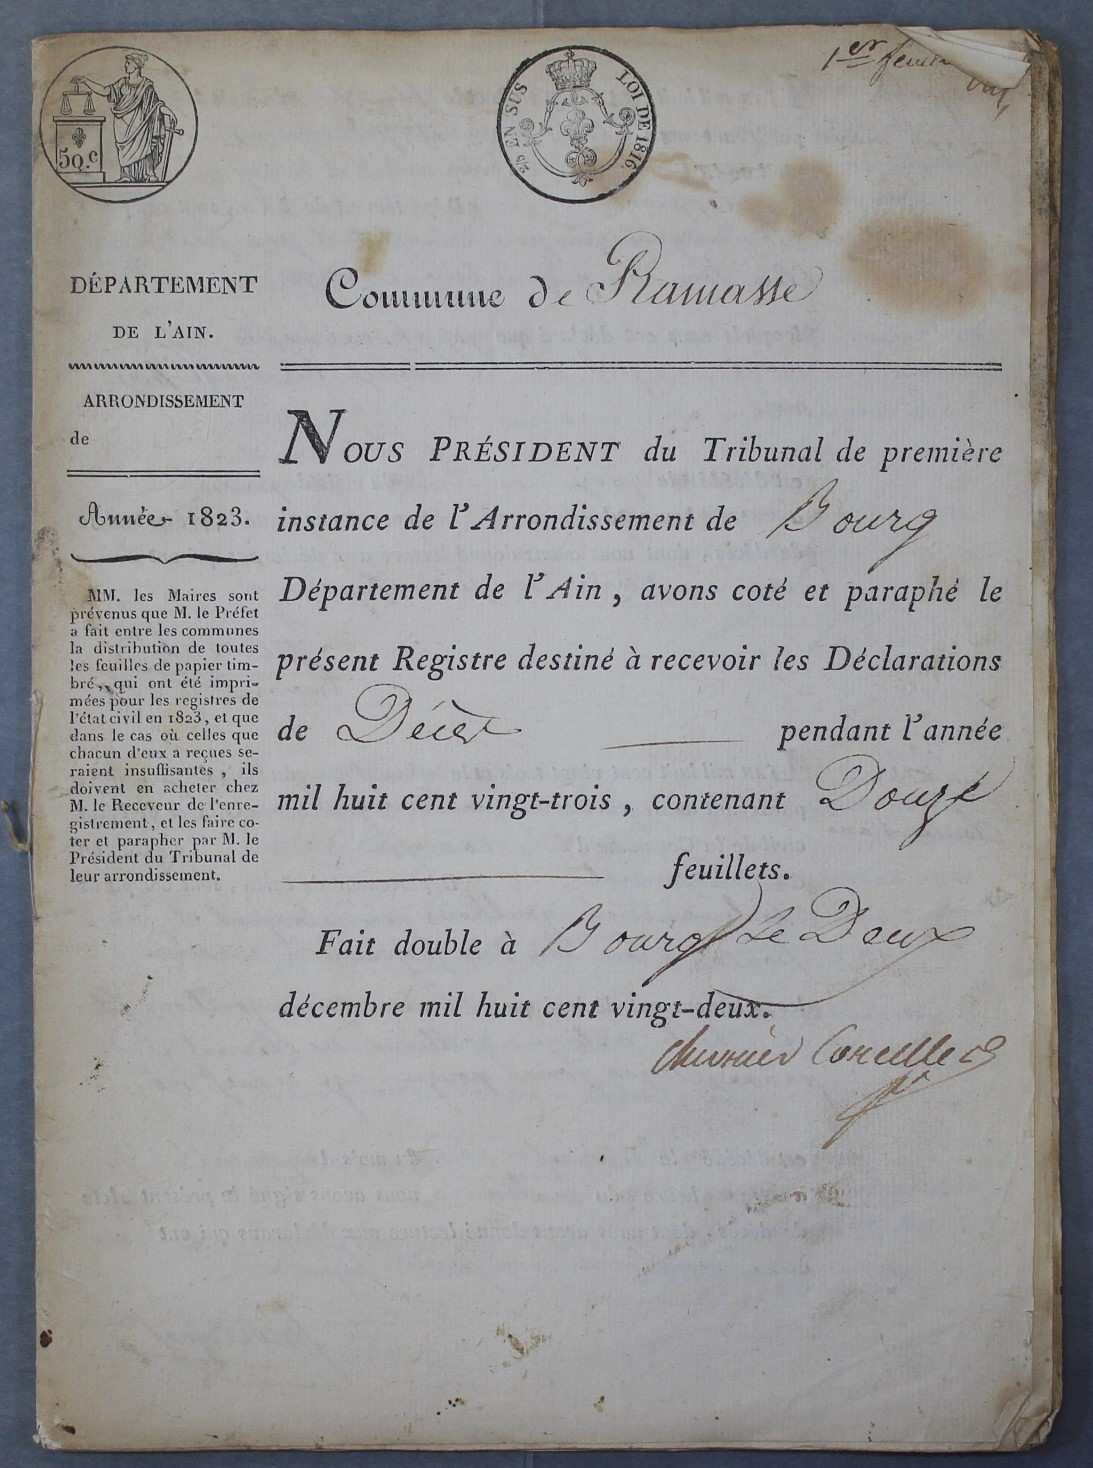 1er feuil
50.c
EN SUS
LOI DE 1816.
DÉPARTEMENT
DE L'AIN.
ARRONDISSEMENT
de
Année 1823.
MM. les Maires sont
prévenus que M. le Préfet
a fait entre les communes
la distribution de toutes
les feuilles de papier tim-
bré, qui ont été impri-
mées pour les registres de
l'état civil en 1823, et que
dans le cas où celles que
chacun d'eux a reçues se-
raient insuffisantes, ils
doivent en acheter chez
M. le Receveur de l'enre-
gistrement, et les faire co-
ter et parapher par M. le
Président du Tribunal de
leur arrondissement.
Commune de Ramasse
NOUS PRÉSIDENT du Tribunal de première
instance de l'Arrondissement de Bourg
Département de l'Ain, avons coté et paraphé le
présent Registre destiné à recevoir les Déclarations
de Décès pendant l'année
mil huit cent vingt-trois, contenant Douze
feuillets.
Fait double à Bourg Le Deux
décembre mil huit cent vingt-deux.